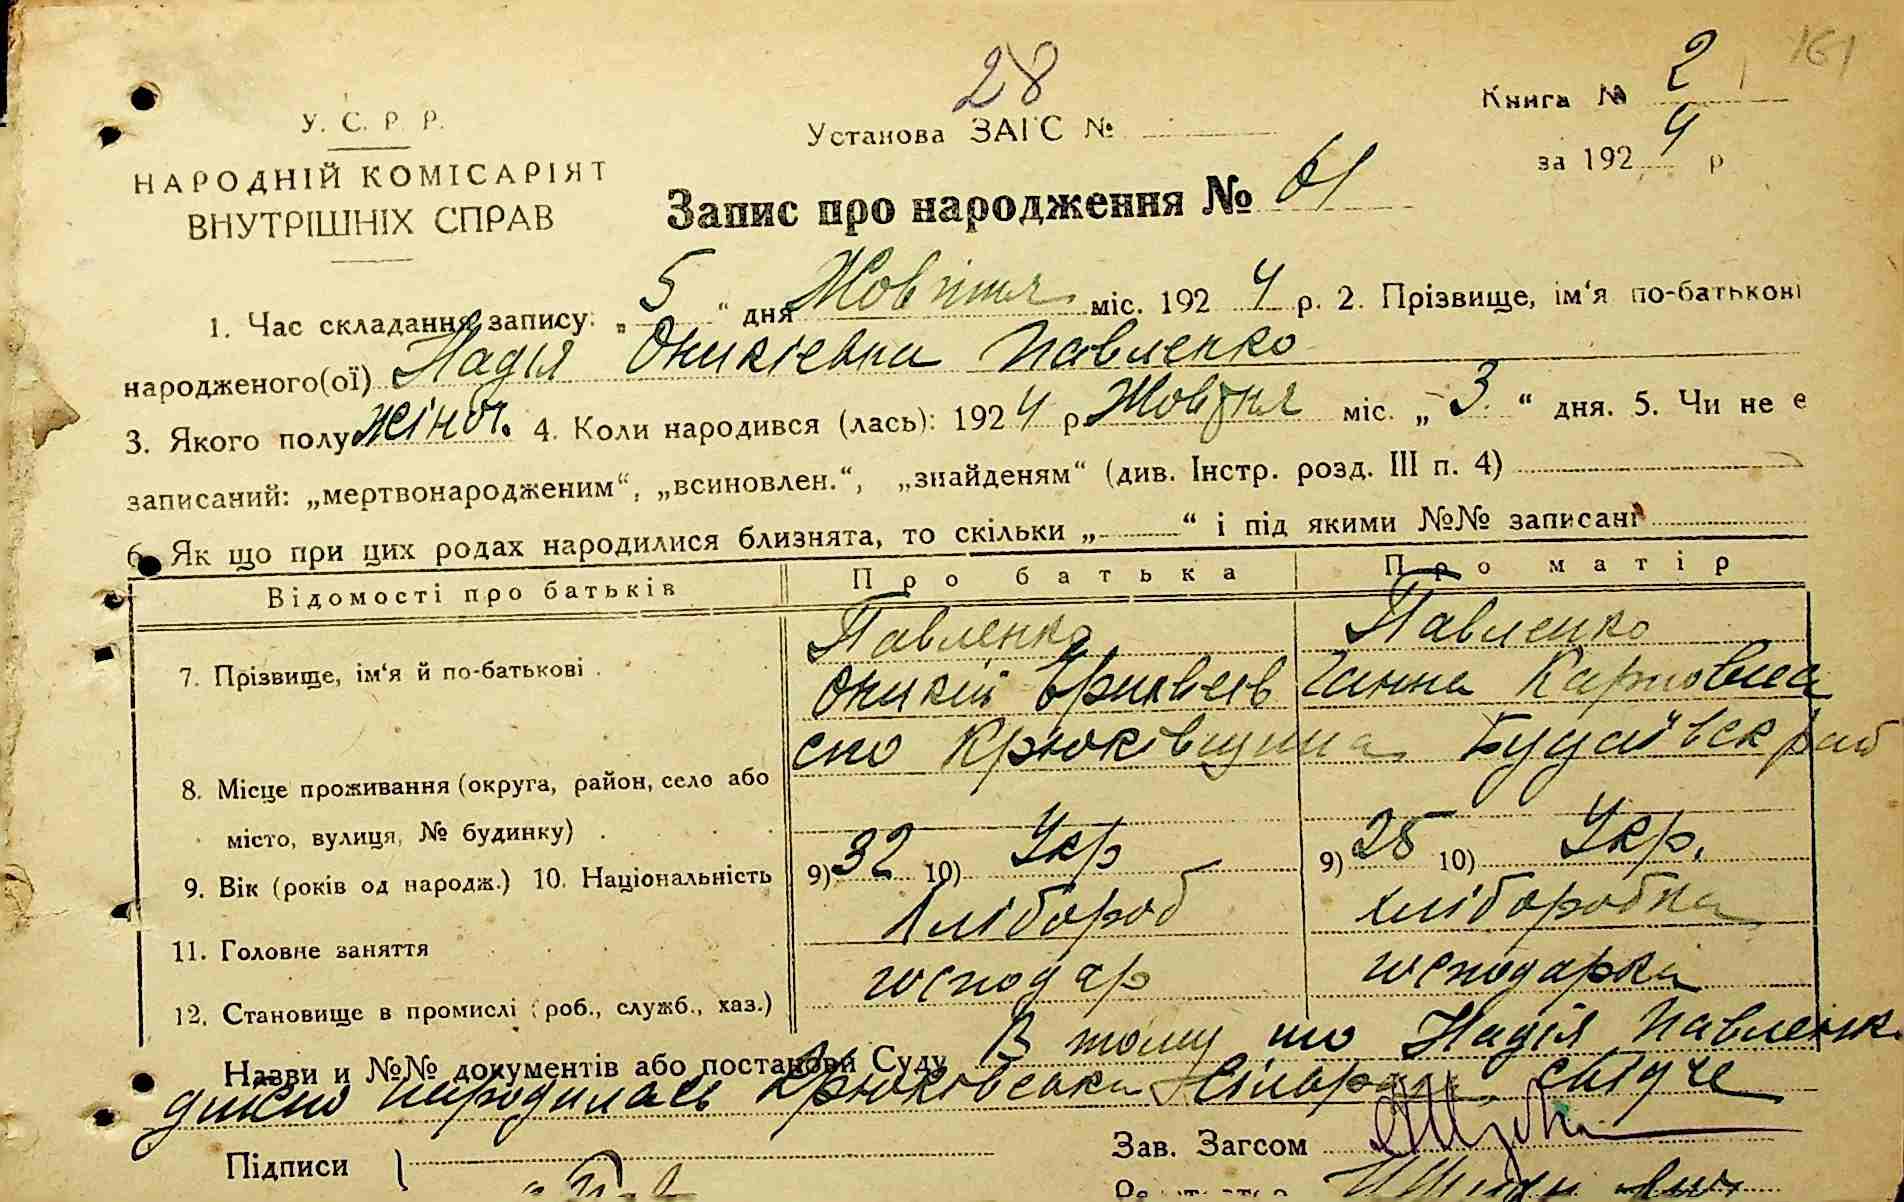 161
28
Книга № 2
У. С. Р. Р.
Установа ЗАГС №
за 1924 р
НАРОДНІЙ КОМІСАРІЯТ
ВНУТРІШНІХ СПРАВ
Запис про народження № 61
1. Час складання запису: „5“ дня Жовтня міс. 1924 р. 2. Прізвище, ім‘я по-батькові
народженого(ої) Надія Оникієвна Павленко
3. Якого полу жіноч. 4. Коли народився (лась): 1924 р. Жовтня міс. „3.“ дня. 5. Чи не є
записаний: „мертвонародженим“, „всиновлен.“, „знайденям“ (див. Інстр. розд. III п. 4)
6. Як що при цих родах народилися близнята, то скільки „ “ і під якими №№ записані
Відомості про батьків Про батька Про матір
7. Прізвище, ім‘я й по-батькові . Павленко Павленко
Оникій Ганна Карповна
8. Місце проживання (округа, район, село або село Крюківщина Будаївск рай
місто, вулиця, № будинку) .
9. Вік (років од народж.) 10. Національність 9) 32 10) Укр 9) 25 10) Укр.
11. Головне заняття Хлібороб хліборобка
12. Становище в промислі (роб., служб., хаз.) господар господарка
Назви и №№ документів або постанови Суду В тому що Надія Павленк
дійсно народилась Крюковська Сільрада свідче
Підписи
Зав. Загсом